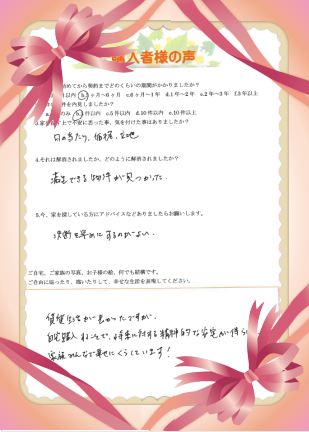 入者様の声
めてから契約までどのくらいの期間がかかりましたか？
以内 b.3ヶ月～6ヶ月 c.6ヶ月～1年 d.1年～2年 e.2年～3年 f.3年以上
件を内見しましたか？
のみ b.3件以内 c.5件以内 d.10件以内 e.10件以上
上で不安に思った事、気を付けた事はありましたか？
日の当たり、価格、立地
4.それは解消されましたか、どのように解消されましたか？
満足できる物件が見つかった。
5.今、家を探している方にアドバイスなどありましたらお願いします。
決断を早めにするのがよい。
ご自宅、ご家族の写真、お子様の絵、何でも結構です。
ご自由に貼ったり、描いたりして、幸せな生活を表現してください。
賃貸生活が長かったですが、
自宅購入することで、将来に対する精神的な安定が得ら
家族みんなで幸せにくらしています！